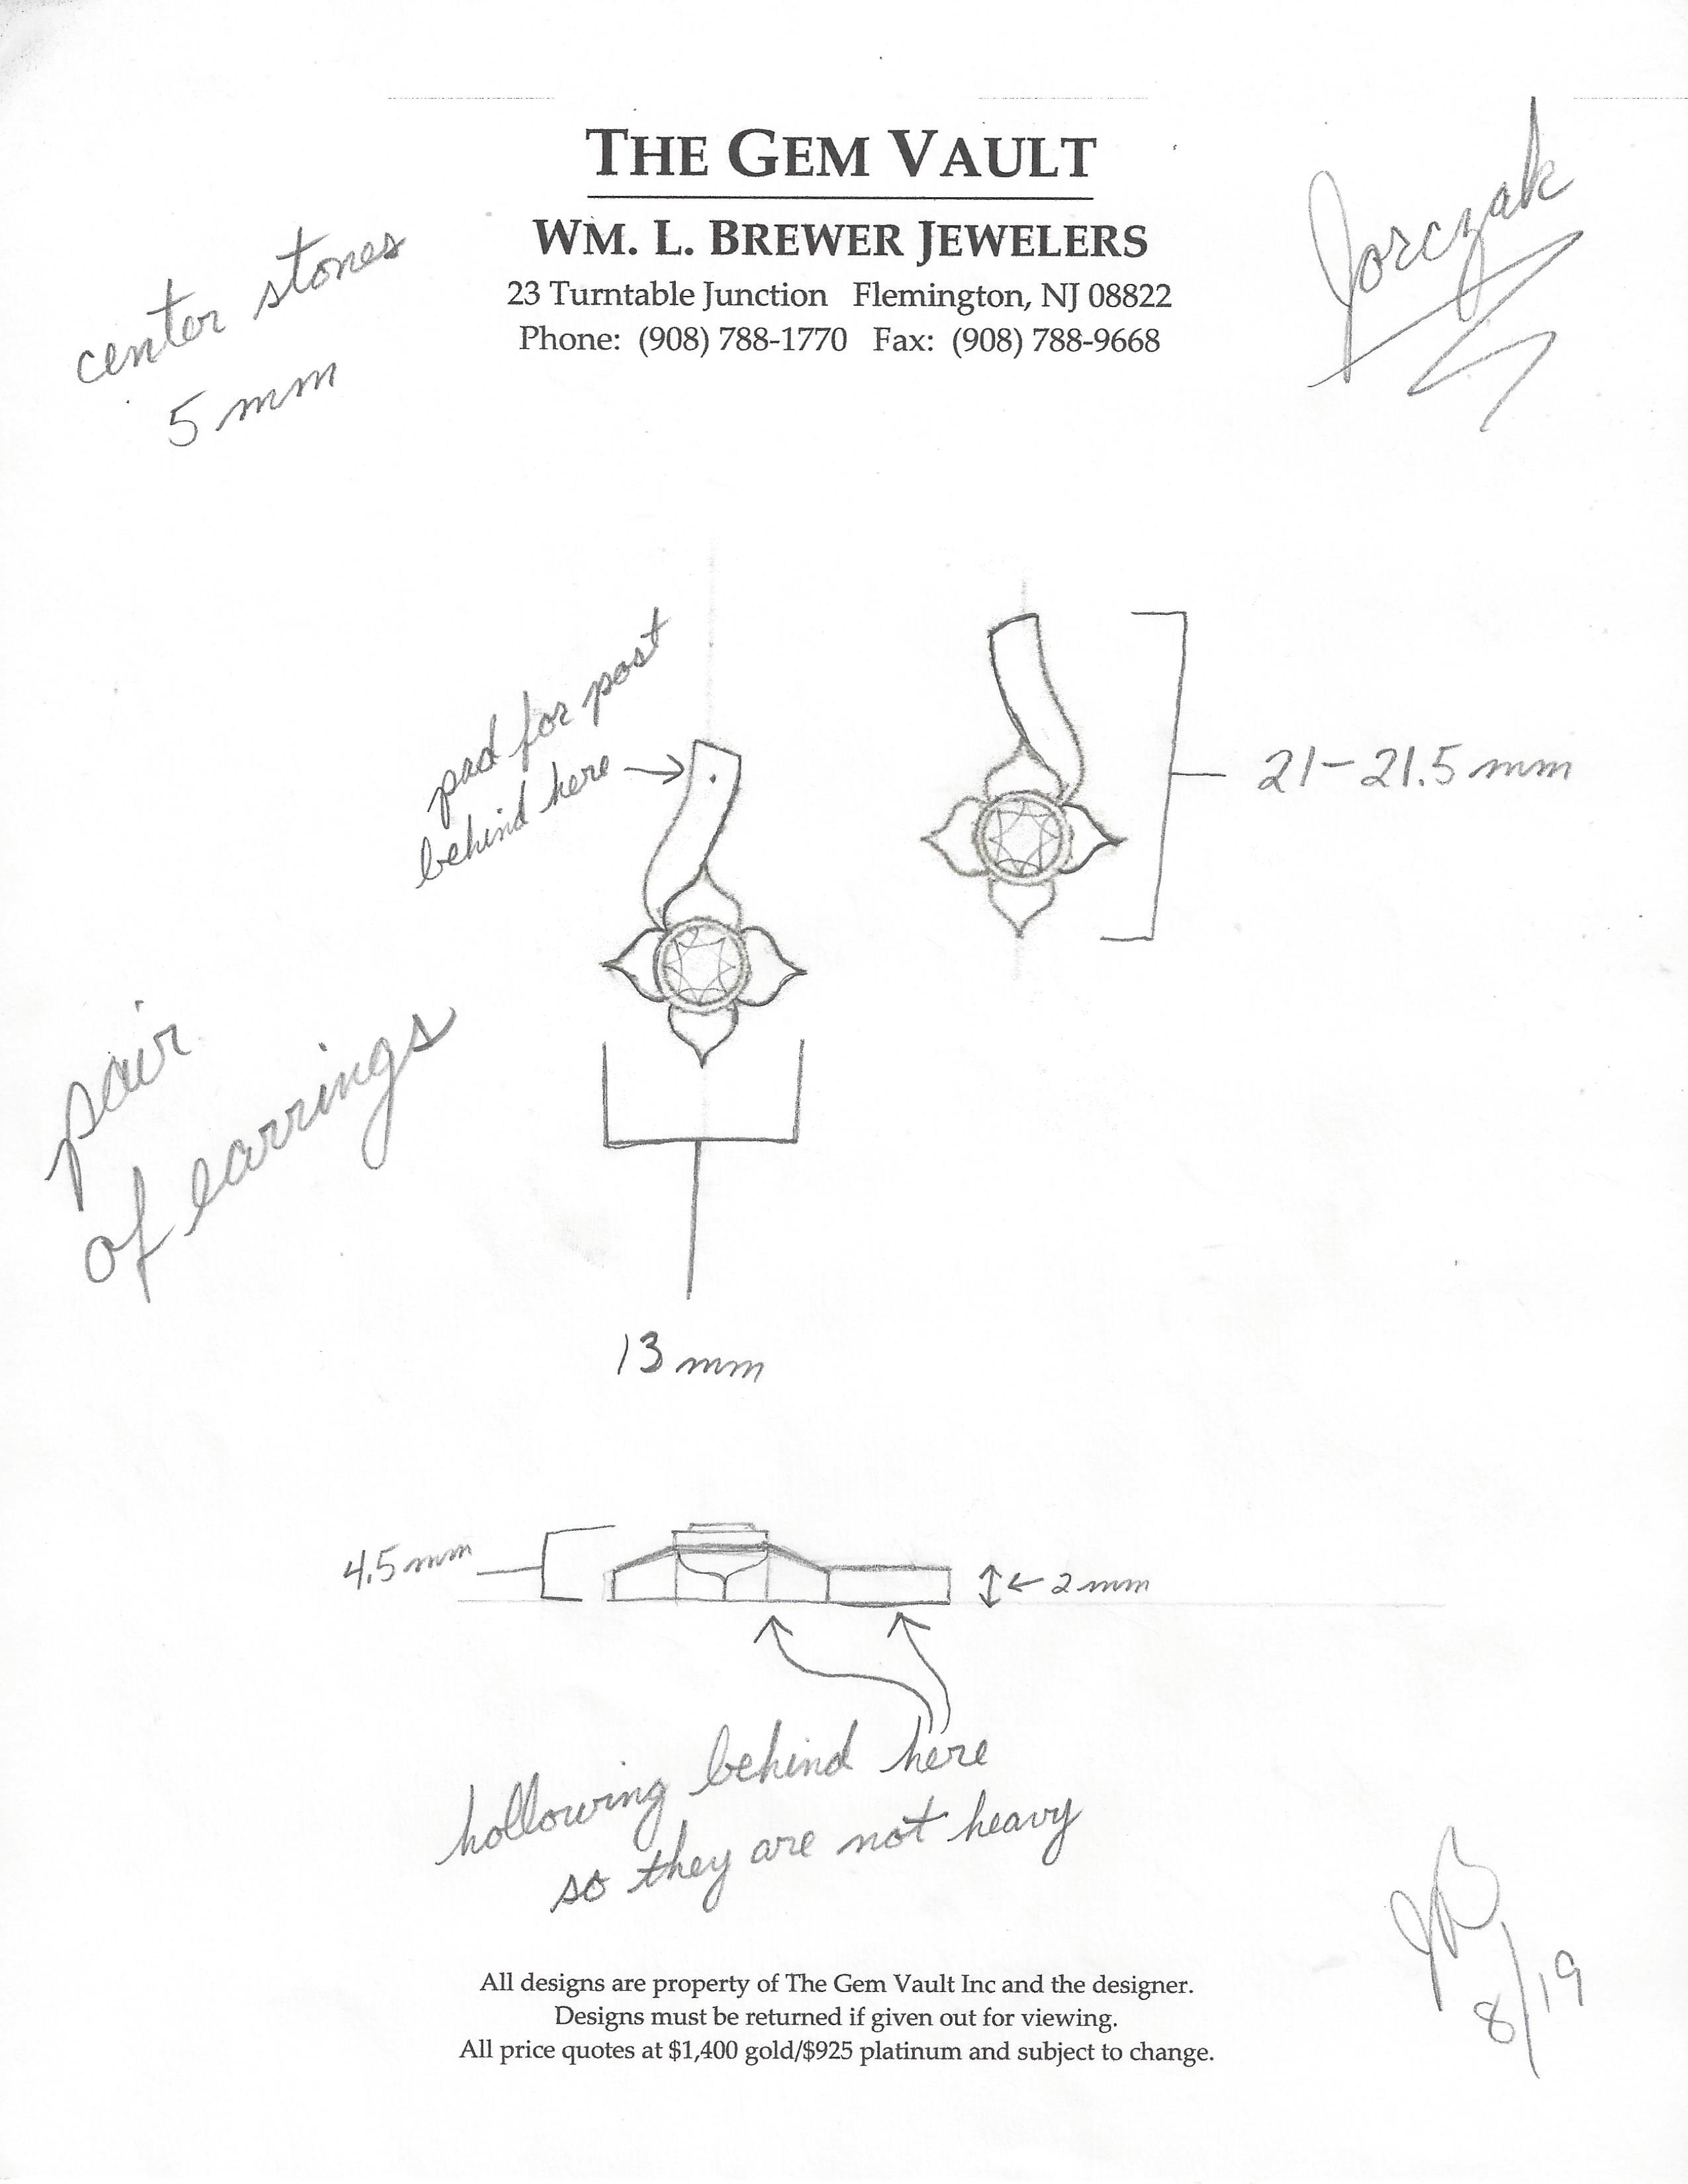 THE GEM VAULT
WM. L. BREWER JEWELERS
23 Turntable Junction Flemington, NJ 08822
Phone: (908) 788-1770 Fax: (908) 788-9668
Jorczak
center stones
5 mm
pad for post
behind here
21-21.5 mm
pair
of earrings
13 mm
4.5 mm
2 mm
hollowing behind here
so they are not heavy
JB
8/19
All designs are property of The Gem Vault Inc and the designer.
Designs must be returned if given out for viewing.
All price quotes at $1,400 gold/$925 platinum and subject to change.